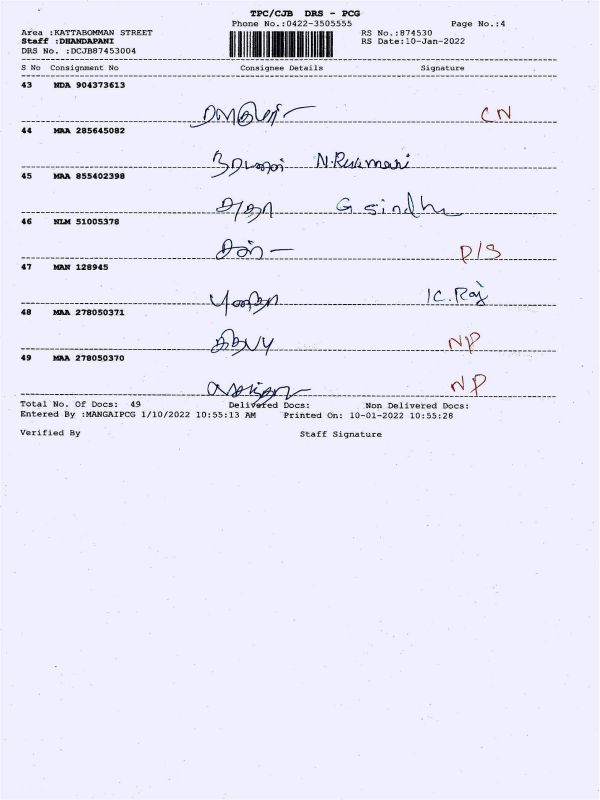 TPC/CJB DRS - PCG
Phone No.:0422-3505555 Page No.:4
Area :KATTABOMMAN STREET RS No.:874530
Staff :DHANDAPANI RS Date:10-Jan-2022
DRS No. :DCJB87453004
S No Consignment No Consignee Details Signature
43 NDA 904373613
CN
44 MAA 285645082
N.Rukmari
45 MAA 855402398
சுதா G sindhu
46 NLM 51005378
D/S
47 MAN 128945
புனிதா K. Raj
48 MAA 278050371
NP
49 MAA 278050370
NP
Total No. Of Docs: 49 Delivered Docs: Non Delivered Docs:
Entered By :MANGAIPCG 1/10/2022 10:55:13 AM Printed On: 10-01-2022 10:55:28
Verified By Staff Signature